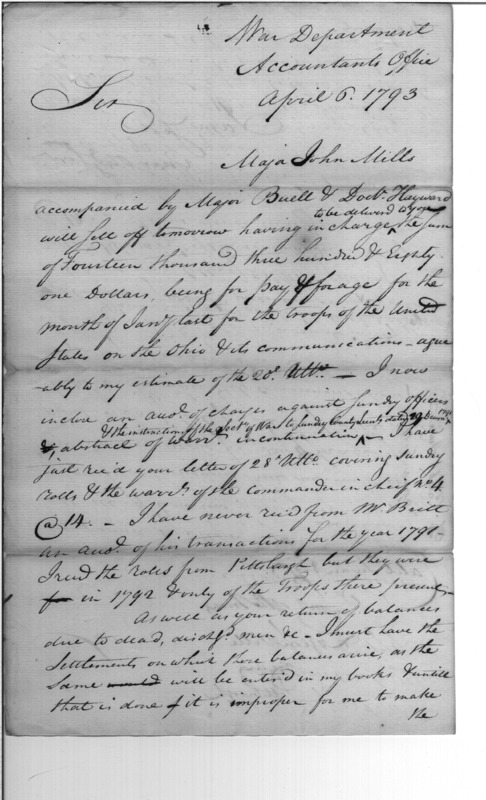 War Department
Accountants Office
April 6. 1793
Sir
Major John Mills
accompanied by Major Buell & Doctr. Hayward
to be deliverd to you
will sett off tomorrow having in charge ^ the sum
of Fourteen thousand three hundred & Eighty
one Dollars, being for pay & forage for the
month of Jany last for the troops of the United
States on the Ohio & its communications - agre
-ably to my estimate of the 20d. Ulto. - I now
inclose an accot. of charges against sundry officers
& the instructions of the Secy of War to sundry
& abstract of warrts. in continuation ^ - I have
just recd your letter of 28 Ulto. covering sundry
rolls & the warrts. of the commander in chief No 4
@ 14. - I have never recd from Mr. Britt
an accot. of his transactions for the year 1791 -
I recd the rolls from Pittsburgh but they were
in 1792 & only of the Troops there present -
As well as your return of balances
due to dead, dischgd men &c - I must have the
Settlements on which those balances arise, as the
Same will be enterd in my books & untill
that is done it is improper for me to make
the